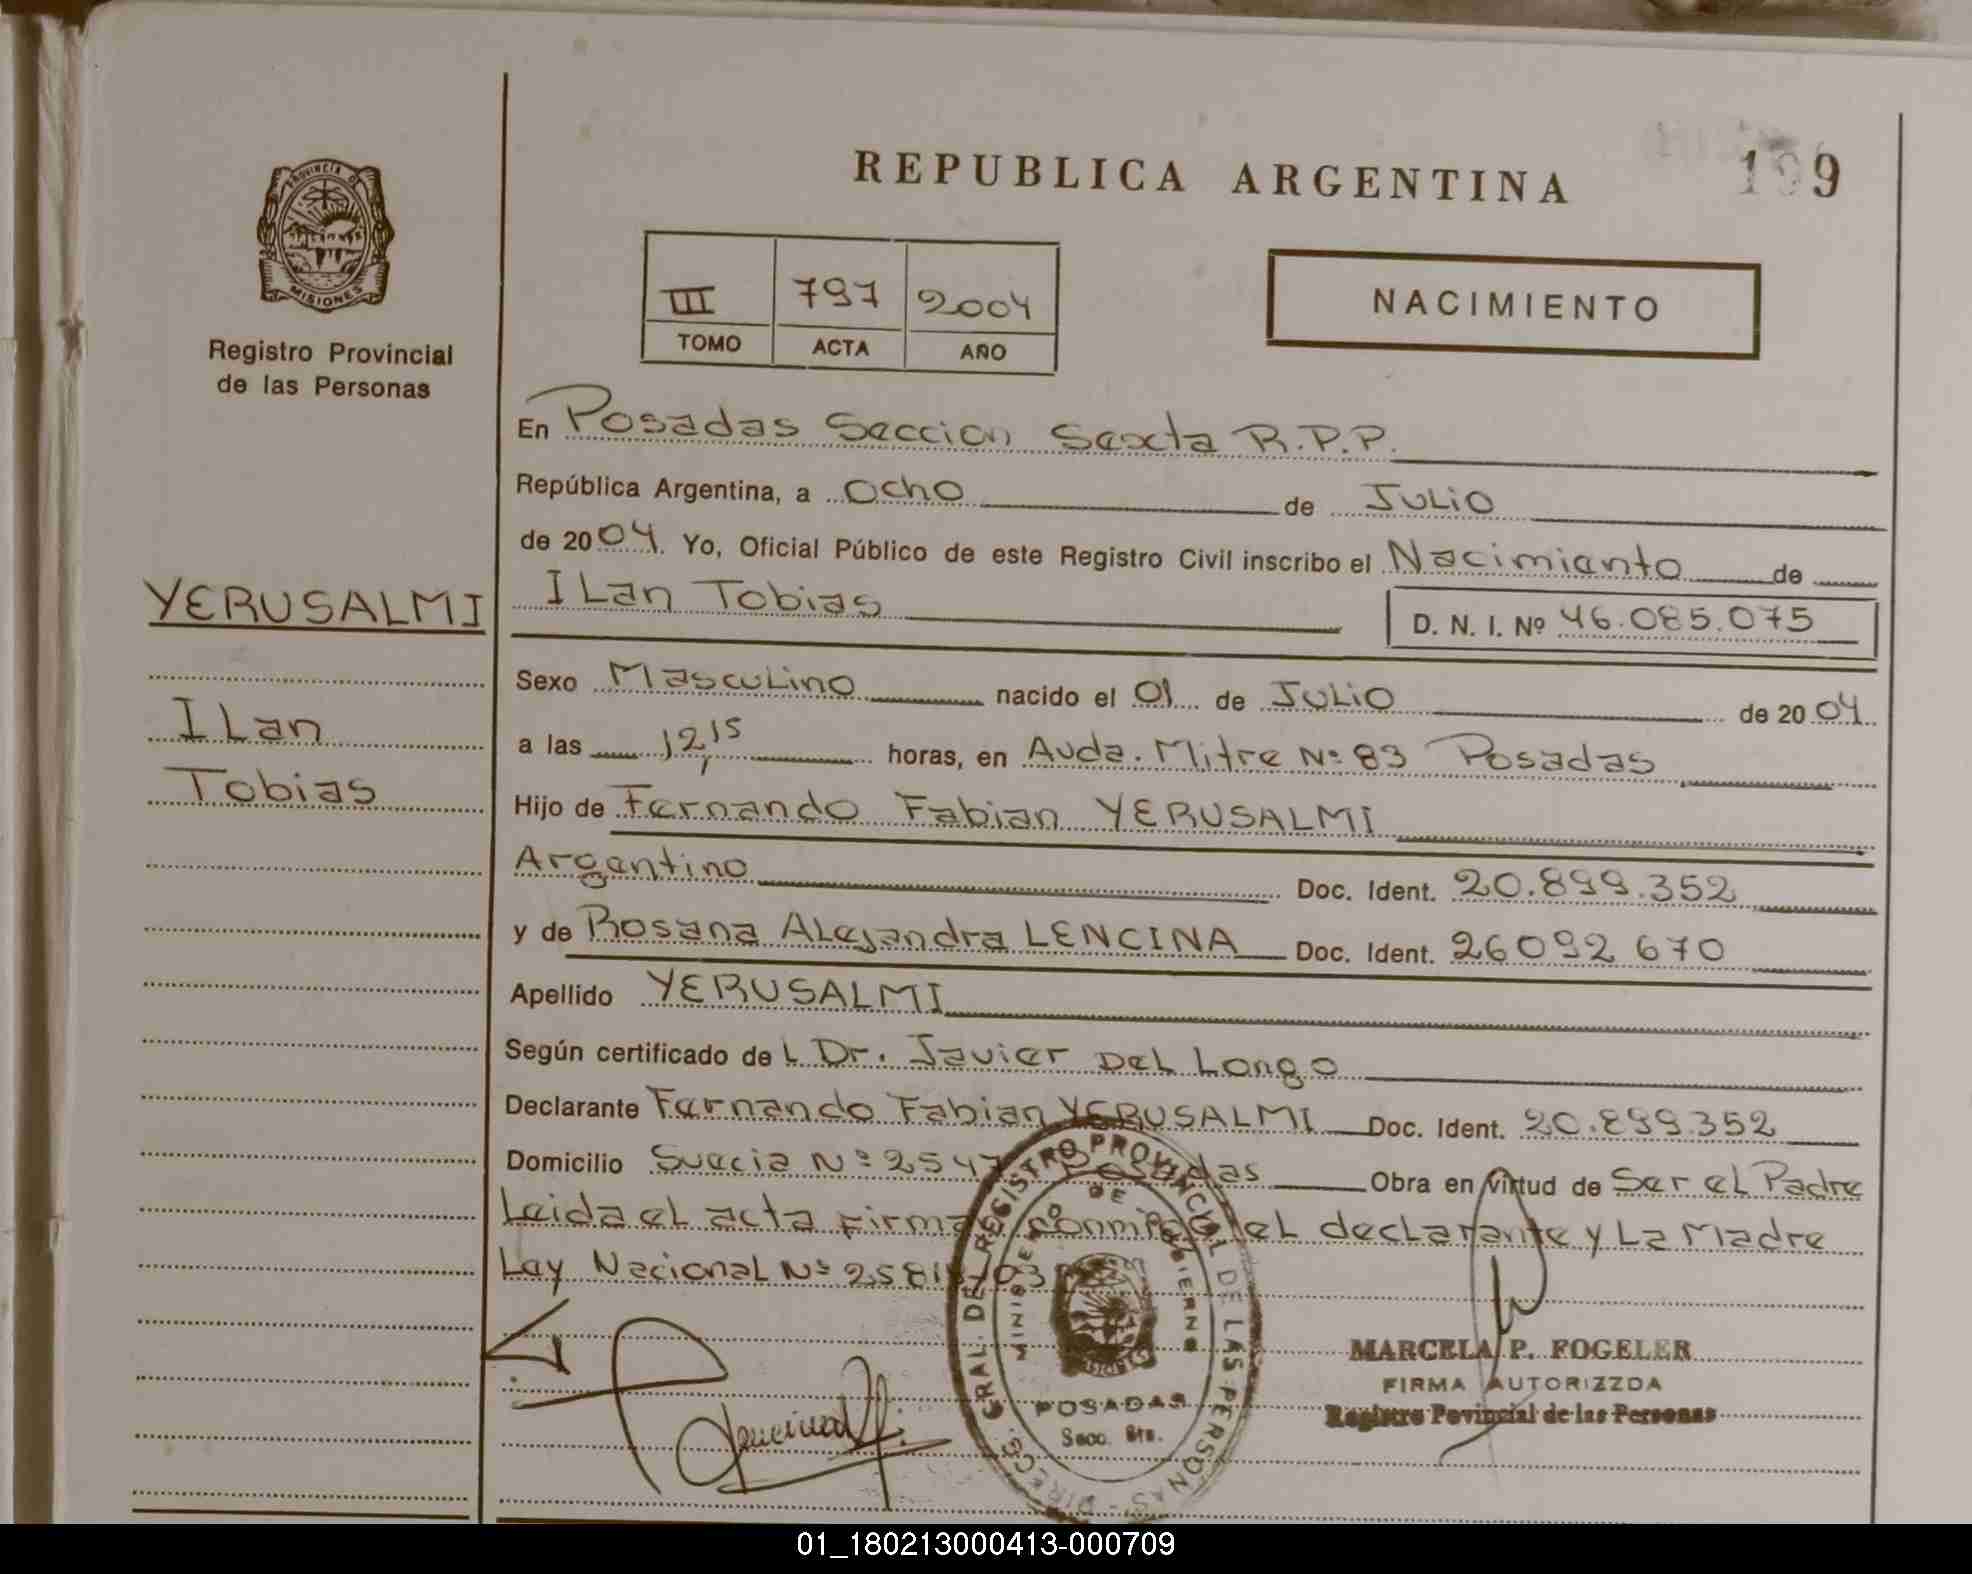 REPUBLICA ARGENTINA
199
PROVINCIA DE
MISIONES
Registro Provincial
de las Personas
III 797 2004
TOMO ACTA AÑO
NACIMIENTO
En Posadas Seccion Sexta R.P.P.
República Argentina, a ocho de Julio
de 2004. Yo, Oficial Público de este Registro Civil inscribo el Nacimiento de
YERUSALMI
Ilan Tobias D. N. I. Nº 46.085.075
Sexo Masculino nacido el 01 de Julio de 2004
Ilan
a las 12,15 horas, en Avda. Mitre Nº 83 Posadas
Tobias
Hijo de Fernando Fabian YERUSALMI
Argentino Doc. Ident. 20.899.352
y de Rosana Alejandra LENCINA Doc. Ident. 26092670
Apellido YERUSALMI
Según certificado del Dr. Javier Del Longo
Declarante Fernando Fabian YERUSALMI Doc. Ident. 20.899.352
Domicilio Suecia Nº 2547 Posadas Obra en virtud de Ser el Padre
Leida el acta firma conmigo el declarante y La Madre
Ley Nacional Nº 25818/03
DIRECC. GRAL. DE REGISTRO PROVINCIAL DE LAS PERSONAS
MINISTERIO DE GOBIERNO
MISIONES
POSADAS
Secc. 6ta.
MARCELA P. FOGELER
FIRMA AUTORIZZDA
Registro Povincial de las Personas
01_180213000413-000709